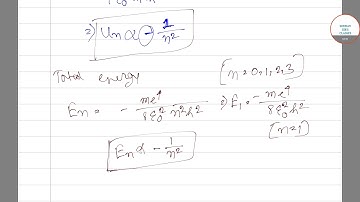 2) Un α - 1/n²
Total energy [n=0,1,2,3]
En = - me⁴/8ε₀²n²h² 2) E₁ = - me⁴/8ε₀²h²
[n=1]
En α - 1/n²